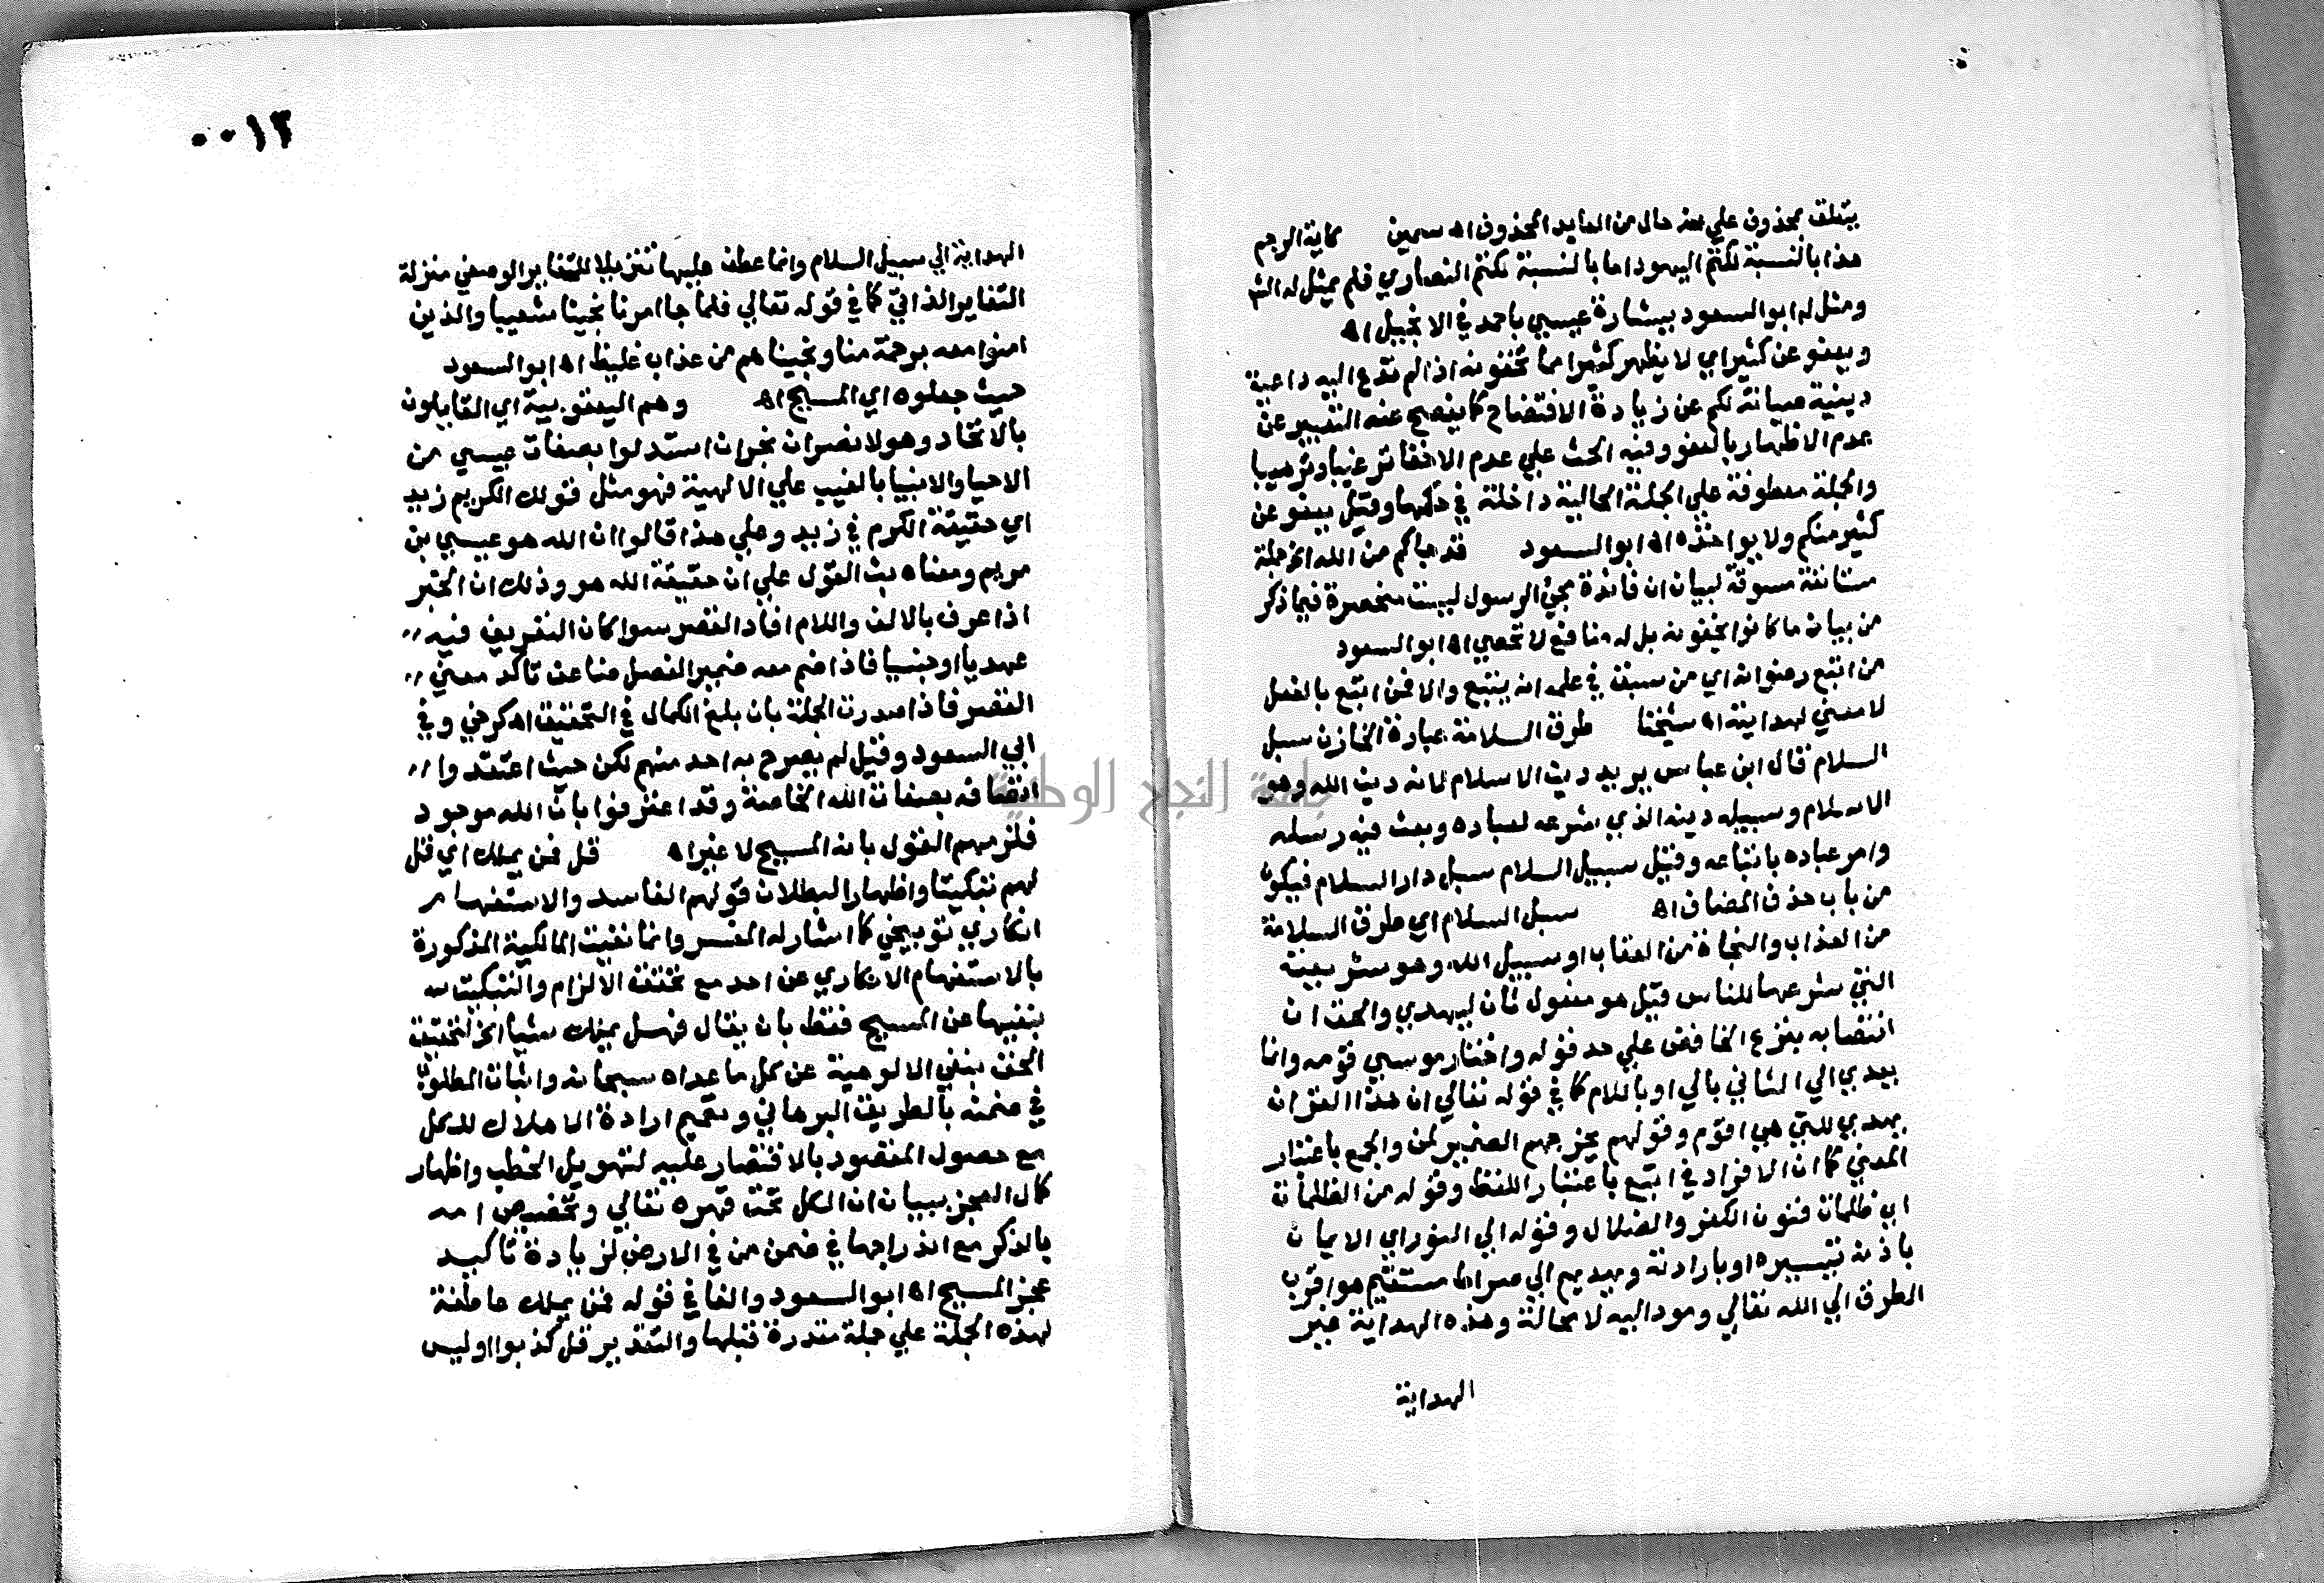 يتعلق بمحذوف علي انه حال من العايد المحذوف اه سمين كاية الرجم
هذا بالنسبة لكتم اليهود اما بالنسبة لكتم النصاري فلم يمثل له الش
ومثل له ابو السعود ببشارة عيسي باحمد في الانجيل اه
ويعفو عن كثير اي لا يظهر كثيرا مما تخفونه اذا لم تدع اليه داعية
دينية صيانة لكم عن زيادة الافتضاح كما يفصح عنه التعبير عن
عدم الاظهار بالعفو وفيه الحث علي عدم الاخفا ترغيبا وترهيبا
والجملة معطوفة علي الجملة الحالية داخلة في حكمها وقيل يعفو عن
كثير منكم ولا يواخذه اه ابو السعود قد جاكم من الله الخ جملة
مستانفة مسوقة لبيان ان فائدة مجئ الرسول ليست منحصرة فيما ذكر
من بيان ما كانوا يخفونه بل له منافع لا تحصي اه ابو السعود
من اتبع رضوانه اي من سبق في علمه انه يتبع والا فمن اتبع بالفعل
لا معني لهدايته اه شيخنا طرق السلامة عبارة الخازن سبل
السلام قال ابن عباس يريد دين الاسلام لانه دين الله وهو
الاسلام وسبيله دينه الذي شرعه لعباده وبعث فيه رسله
وامر عباده باتباعه وقيل سبيل السلام سبل دار السلام فيكون
من باب حذف المضاف اه سبل السلام اي طرق السلامة
من العذاب والنجاة من العقاب او سبيل الله وهو شريعته
التي شرعها للناس قيل هو مفعول ثان ليهدي والحق ان
انتصابه بنزع الخافض علي حد قوله واختار موسي قومه وانما
يعدي الي الثاني بالي او باللام كما في قوله تعالي ان هذا القران
يهدي للتي هي اقوم وقولهم يخرجهم الضمير لمن والجمع باعتبار
المعني كما ان الافراد في اتبع باعتبار اللفظ وقوله من الظلمات
اي ظلمات فنون الكفر والضلال وقوله الي النور اي الايمان
باذنه بتيسيره او بارادته ويهديهم الي صراط مستقيم هو اقرب
الطرق الي الله تعالي ومود اليه لا محالة وهذه الهداية عين
الهداية
٠٠١٣
الهداية الي سبيل السلام وانما عطف عليها تنزيلا للتغاير الوصفي منزلة
التغاير الذاتي كما في قوله تعالي فلما جا امرنا نجينا شعيبا والذين
امنوا معه برحمة منا ونجيناهم من عذاب غليظ اه ابو السعود
حيث جعلوه اي المسيح اه وهم اليعقوبية اي القايلون
بالاتحاد وهولا نصران نجران استدلوا بصفات عيسي من
الاحيا والانبيا بالغيب علي الالهية فهو مثل قولك الكريم زيد
اي حقيقة الكرم في زيد وعلي هذا قالوا ان الله هو عيسي بن
مريم ومعناه بث القول علي ان حقيقة الله هو وذلك ان الخبر
اذا عرف بالالف واللام افاد القصر سوا كان التعريف فيه
عهديا او جنسيا فاذا ضم معه ضمير الفصل ضاعف تاكد معني
القصر فاذا صدرت الجملة بان بلغ الكمال في التحقيق اه كرخي وفي
ابي السعود وقيل لم يصرح به احد منهم لكن حيث اعتقدوا
اتصافه بصفات الله الخاصة وقد اعترفوا بان الله موجود
فلزمهم القول بانه المسيح لا غير اه قل فمن يملك اي قل
لهم تبكيتا واظهارا لبطلان قولهم الفاسد والاستفهام
انكاري توبيخي كما اشار له المفسر وانما نفيت المالكية المذكورة
بالاستفهام الانكاري عن احد مع تحقق الالزام والتبكيت
بنفيها عن المسيح فقط بان يقال فهل يملك شيا الخ لتحقيق
الحق بنفي الالوهية عن كل ما عداه سبحانه واثبات المطلوب
في ضمنه بالطريق البرهاني وتعميم ارادة الاهلاك للكل
مع حصول المقصود بالاقتصار عليه لتهويل الخطب واظهار
كمال العجز ببيان ان الكل تحت قهره تعالي وتخصيص امه
بالذكر مع اندراجها في ضمن من في الارض لزيادة تاكيد
عجز المسيح اه ابو السعود والفا في قوله فمن يملك عاطفة
لهذه الجملة علي جملة مقدرة قبلها والتقدير قل كذبوا او ليس
جامعة النجاح الوطنية